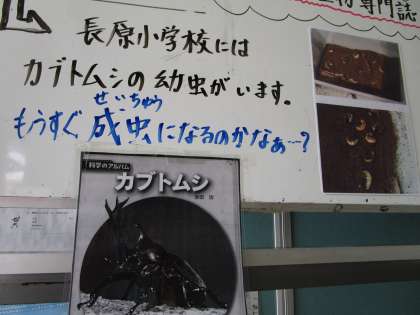 専門誌
長原小学校には
カブトムシの幼虫がいます。
せいちゅう
もうすぐ成虫になるのかなぁ…?
科学のアルバム
カブトムシ